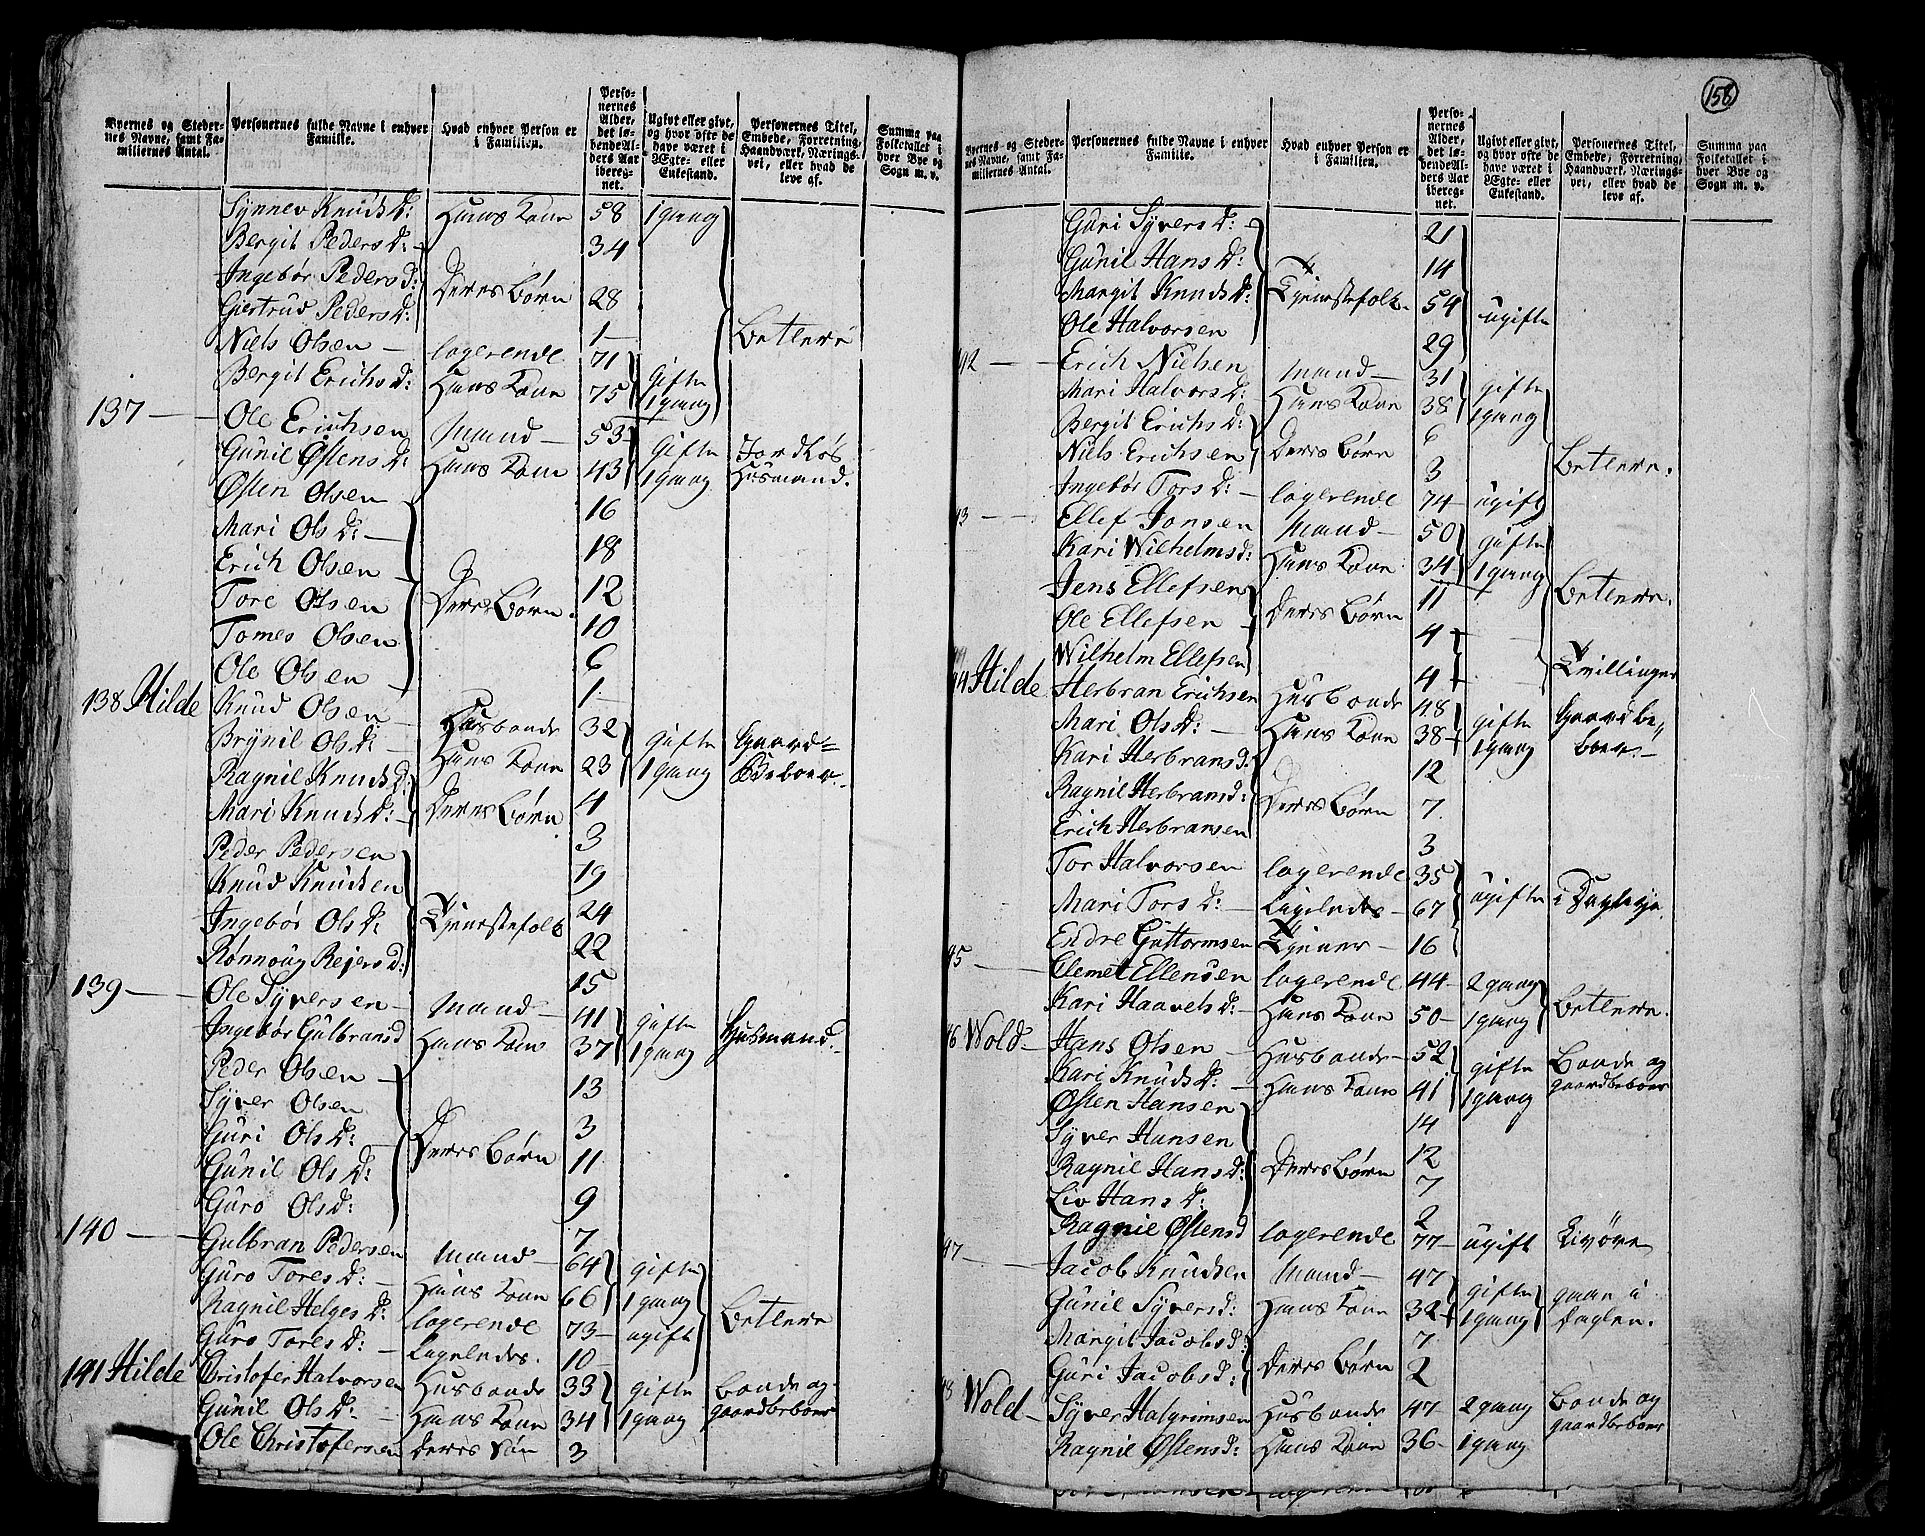 158
Byernes og Stedernes Navne, samt Familiernes Antal. | Personernes fulde Navne i enhver Familie. | Hvad enhver Person er i Familien. | Personernes Alder, det løbende Alders Aar iberegnet. | Ugivt eller givt, og hvor ofte de have været i Ægte- eller Enkestand. | Personernes Titel, Embede, Forretning, Haandværk, Næringsvei, eller hvad de leve af. | Summa paa Folketallet i hver Bye og Sogn m. v.
Synnev Knuds D: Hans Kone 58 1 gang
Bergit Peders D: 34
Ingebør Peders D: Deres Børn 28
Giertrud Peders D: 1
Niels Olsen logerende 71 gifte Betlere
Bergit Erichs D: Hans Kone 75 1 gang
137 Ole Erichsen Mand 53 gifte Jordløs
Gunil Østens D: Hans Kone 43 1 gang Husmand.
Østen Olsen 16
Mari Ols D: 18
Erich Olsen 12
Tore Olsen Deres Børn 10
Tomes Olsen 6
Ole Olsen 1
138 Hilde Knud Olsen Husbonde 32 gifte Gaard-
Brynil Ols D: Hans Kone 23 1 gang beboer
Ragnil Knuds D: Deres Børn 4
Mari Knuds D: 3
Peder Pedersen 19
Knud Knudsen Tjenestefolk 24
Ingebør Ols D: 22
Rønnoug Rejers D: 15
139 Ole Syversen Mand 41 gifte Husmand
Ingebør Gulbrans D Hans Kone 37 1 gang
Peder Olsen 13
Syver Olsen 3
Guri Ols D: Deres Børn 11
Gunil Ols D: 9
Guro Ols D: 7
140 Gulbran Pedersen Mand 64 gifte
Guro Tores D: Hans Kone 66 1 gang Betlere
Ragnil Helges D: logerende 73 ugift
Guro Tores D: Ligeledes 10
141 Hilde Christofer Halvorsen Husbonde 33 gifte Bonde og
Gunil Ols D: Hans Kone 34 1 gang gaardbeboer
Ole Christofersen Deres Søn 3
Byernes og Stedernes Navne, samt Familiernes Antal. | Personernes fulde Navne i enhver Familie. | Hvad enhver Person er i Familien. | Personernes Alder, det løbende Alders Aar iberegnet. | Ugivt eller givt, og hvor ofte de have været i Ægte- eller Enkestand. | Personernes Titel, Embede, Forretning, Haandværk, Næringsvei, eller hvad de leve af. | Summa paa Folketallet i hver Bye og Sogn m. v.
Guri Syvers D: 21
Gunil Hans D: 14
Margit Knuds D: Tjenestefolk 54 ugifte
Ole Halvorsen 29
42 Erich Nielsen Mand 31 gifte
Mari Halvors D: Hans Kone 38 1 gang
Bergit Erichs D: Deres Børn 6 Betlere.
Niels Erichsen 3
Ingebør Tors D: logerende 74 ugift
43 Ellef Jonsen Mand 50 gifte
Kari Wilhelms D: Hans Kone 34 1 gang Betlere.
Jens Ellefsen 11
Ole Ellefsen Deres Børn 4
Wilhelm Ellefsen 4 Tvillinger
44 Hilde Herbran Erichsen Husbonde 48 gifte Gaardbe-
Mari Ols D: Hans Kone 38 1 gang boer
Kari Herbrans D: 12
Ragnil Herbrans D: Deres Børn 7
Erich Herbransen 3
Tor Halvorsen logerende 35 ugifte
Mari Tors D: Ligeledes 67
Endre Guttormsen Tjener 16
45 Clemet Ellensen logerende 44 2 gang Betlere.
Kari Haavels D: Hans Kone 50 1 gang
46 Wold Hans Olsen Husbonde 52 gifte Bonde og
Kari Knuds D: Hans Kone 41 1 gang gaardbeboer
Østen Hansen 14
Syver Hansen 12
Ragnil Hans D: Deres Børn 7
Liv Hans D: 2
Ragnil Østens D logerende 77 ugift
47 Jacob Knudsen Mand 47 gifte gaar i
Gunil Syvers D: Hans Kone 32 1 gang Daglen.
Margit Jacobs D: 7
Guri Jacobs D: Deres Børn 2
48 Wold Syver Halgrimsen Husbonde 47 2 gang Bonde og
Ragnil Østens D: Hans Kone 36 1 gang gaardbeboer